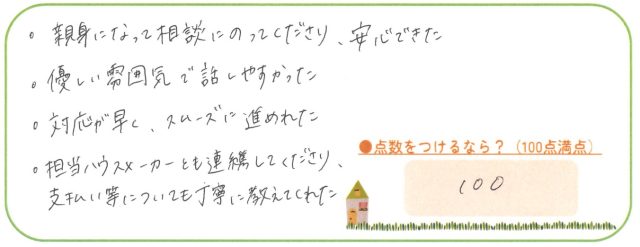 ・親身になって相談にのってくださり、安心できた
・優しい雰囲気で話しやすかった
・対応が早く、スムーズに進めれた
・担当ハウスメーカーとも連携してくださり、
支払い等についても丁寧に教えてくれた
●点数をつけるなら？（100点満点）
100